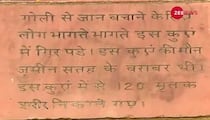 ZEE NEWS
गोली से जान बचाने के लिए
लोग भागते भागते इस कुएं
में गिर पडे। इस कुएं की मौन
जमीन सतह के बराबर थी।
इस कुएं में से 120 मृतक
शरीर निकाले गए।